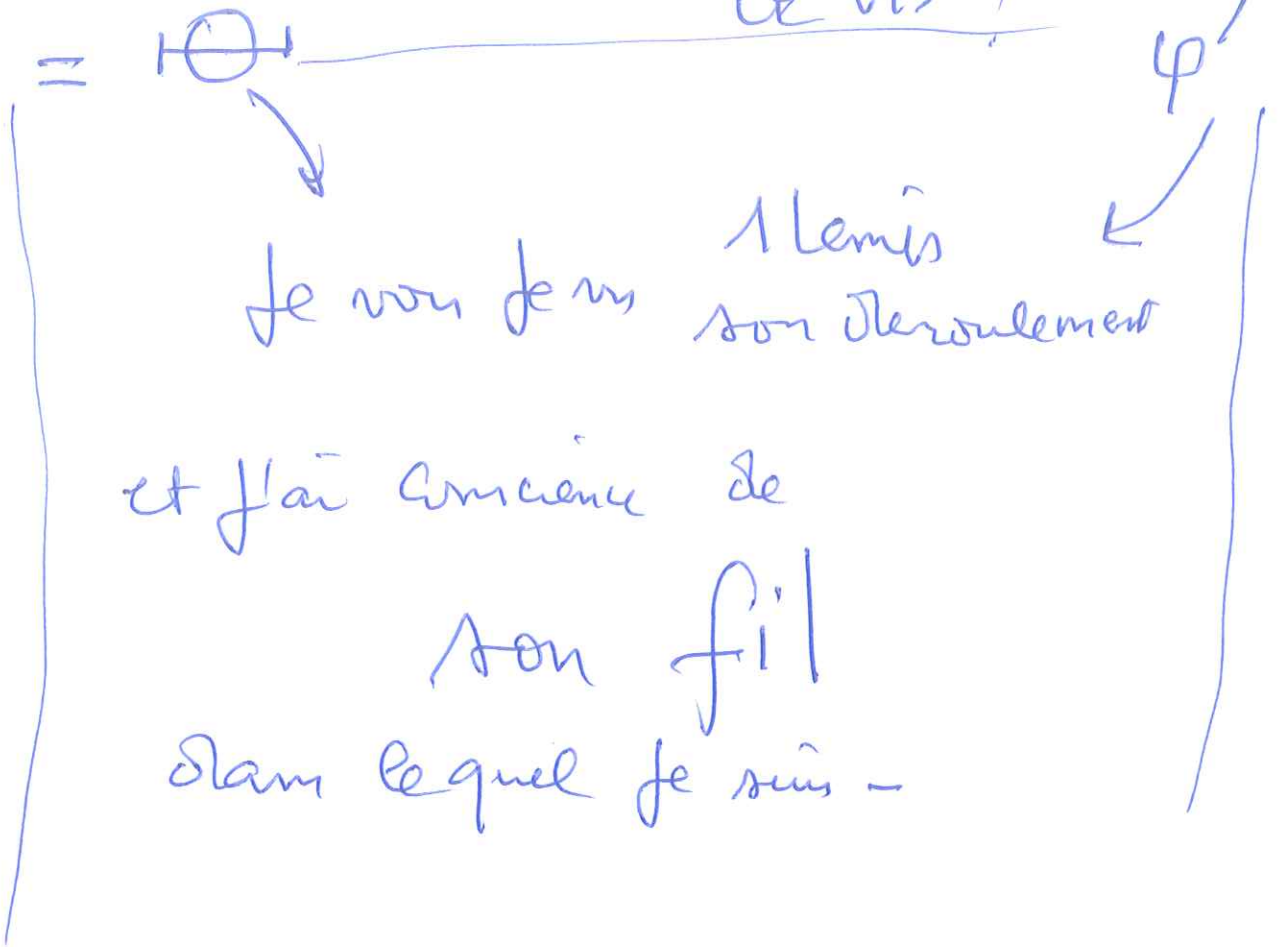 = φ
Je vois Je vis
son déroulement
et J'ai conscience de
son fil
dans lequel Je suis -